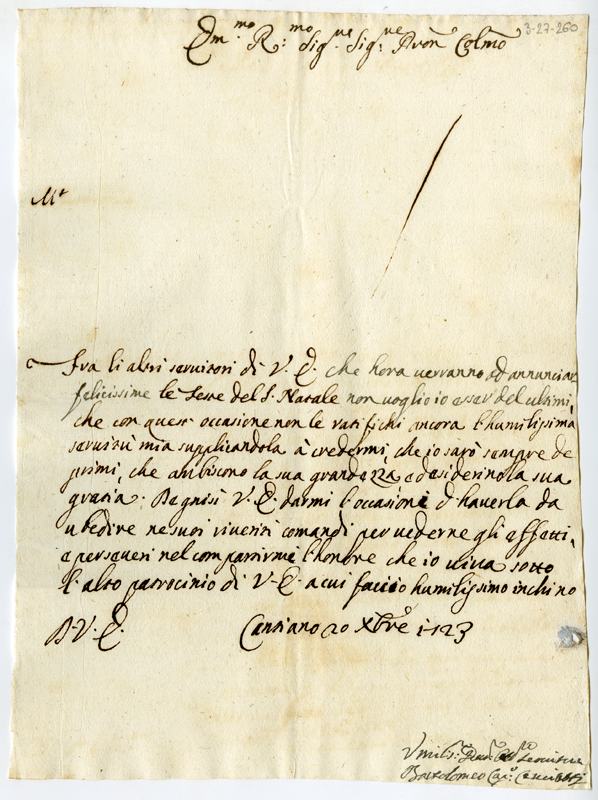 Em.mo R.mo Sig.re Sig.re Pron Colmo
3-27-260
Fra li altri servitori di V. E. che hora verranno ad annunciar
felicissime le feste del S. Natale non voglio io esser del ultimi,
che con quest occasione non le ratifichi ancora l'humilissima
servitù mia supplicandola à credermi, che io sarò sempre de
primi, che ambiscono la sua grandezza e desiderino la sua
gratia. Degnisi V. E. darmi l'occasione d'haverla da
ubedire ne suoi riveriti comandi per vederne gli effetti,
e perseveri nel compartirmi l'honore che io viva sotto
l'alto patrocinio di V. E. a cui faccio humilissimo inchino
D. V. E.
Cantiano 20 Xbre 1723
Bartolomeo